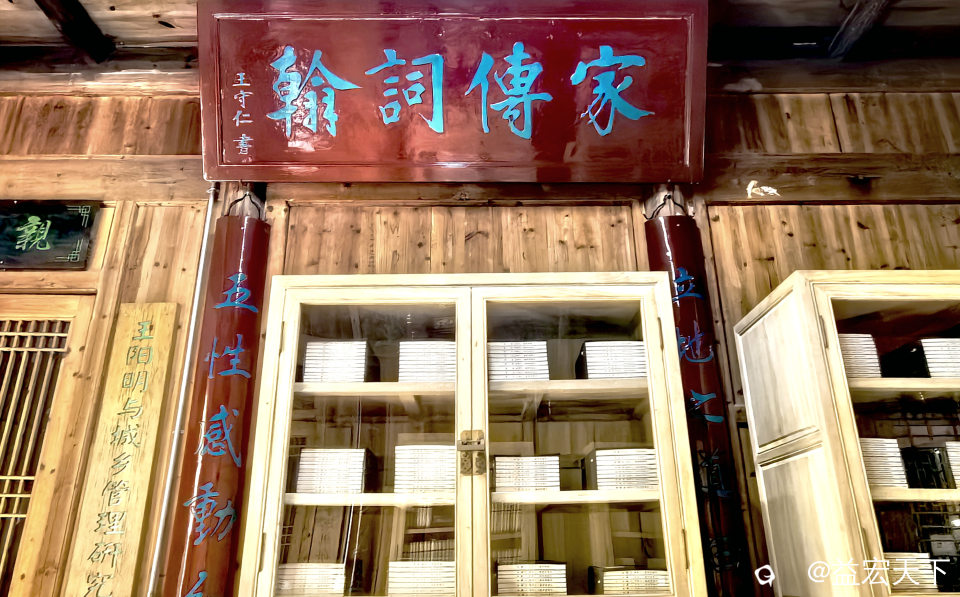 家傳詞翰
王守仁書
立地之道
五性感動
親
王阳明与城乡管理研究
@益宏天下